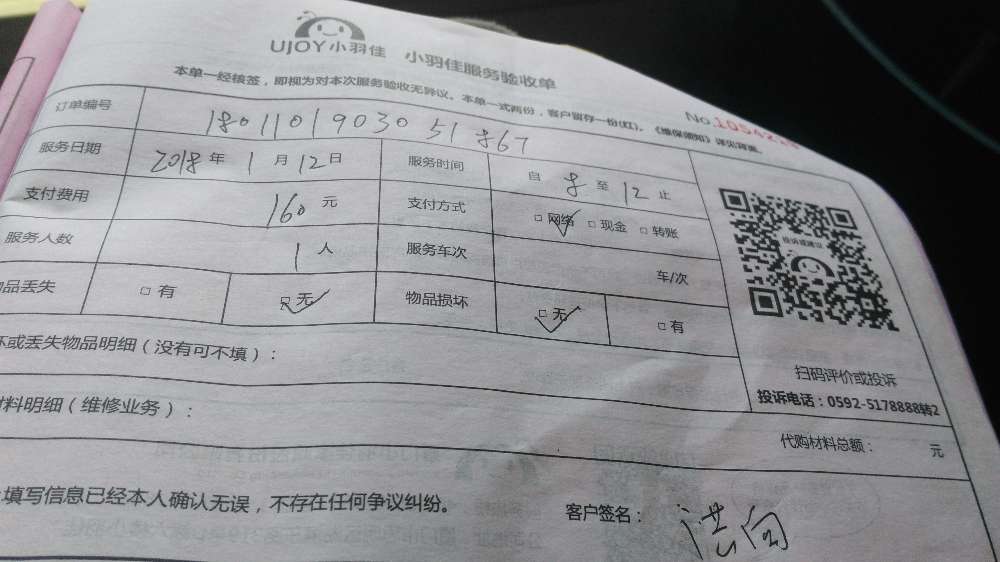 UJOY小羽佳 小羽佳服务验收单
本单一经核签，即视为对本次服务验收无异议。本单一式两份，客户留存一份(红)。《维保须知》详见背面。
No.
订单编号 1801101903051867
服务日期 2018年1月12日 服务时间 自 8 至 12 止
支付费用 160元 支付方式 □网络 □现金 □转账
服务人数 1人 服务车次 车/次
品丢失 □有 □无 物品损坏 □无 □有
投诉或建议
坏或丢失物品明细（没有可不填）：
扫码评价或投诉
投诉电话：0592-5178888转2
材料明细（维修业务）：
代购材料总额： 元
填写信息已经本人确认无误，不存在任何争议纠纷。
客户签名：